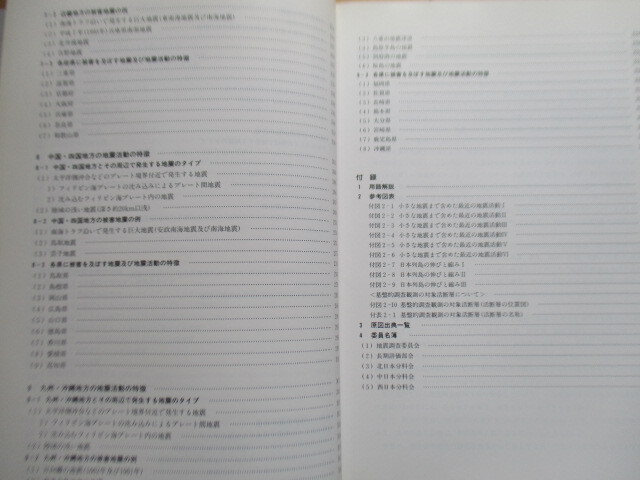 7-2 近畿地方の被害地震の例
(1) 南海トラフ沿いで発生する巨大地震(東南海地震及び南海地震)
(3) 北丹後地震
7-3 各府県に被害を及ぼす地震及び地震活動の特徴
(1) 三重県
(2) 滋賀県
(3) 京都府
(4) 大阪府
(5) 兵庫県
(6) 奈良県
(7) 和歌山県
8 中国・四国地方の地震活動の特徴
8-1 中国・四国地方とその周辺で発生する地震のタイプ
(1) 太平洋側沖合などのプレート境界付近で発生する地震
1) フィリピン海プレートの沈み込みによるプレート間地震
2) 沈み込むフィリピン海プレート内の地震
(2) 陸域の浅い地震(深さ約20km以浅)
8-2 中国・四国地方の被害地震の例
(1) 南海トラフ沿いで発生する巨大地震(安政南海地震及び南海地震)
(2) 鳥取地震
(3) 芸予地震
8-3 各県に被害を及ぼす地震及び地震活動の特徴
(1) 鳥取県
(2) 島根県
(3) 岡山県
(4) 広島県
(5) 山口県
(6) 徳島県
(7) 香川県
(8) 愛媛県
(9) 高知県
9 九州・沖縄地方の地震活動の特徴
9-1 九州・沖縄地方とその周辺で発生する地震のタイプ
(1) 太平洋側沖合などのプレート境界付近で発生する地震
1) フィリピン海プレートの沈み込みによるプレート間地震
2) 沈み込むフィリピン海プレート内の地震
(2) 陸域の浅い地震
9-2 九州・沖縄地方の被害地震の例
(2) 八重山地震津波
(3) 島原半島の地震
(4) の地震
9-3 各県に被害を及ぼす地震及び地震活動の特徴
(1) 福岡県
(2) 佐賀県
(3) 長崎県
(4) 熊本県
(5) 大分県
(6) 宮崎県
(7) 鹿児島県
(8) 沖縄県
付 録
1 用語解説
2 参考図表
付図2-1 小さな地震まで含めた最近の地震活動I
付図2-2 小さな地震まで含めた最近の地震活動II
付図2-3 小さな地震まで含めた最近の地震活動III
付図2-4 小さな地震まで含めた最近の地震活動IV
付図2-5 小さな地震まで含めた最近の地震活動V
付図2-6 小さな地震まで含めた最近の地震活動VI
付図2-7 日本列島の伸びと縮みI
付図2-8 日本列島の伸びと縮みII
付図2-9 日本列島の伸びと縮みIII
<基盤的調査観測の対象活断層について>
付図2-10 基盤的調査観測の対象活断層(活断層の位置図)
付表2-1 基盤的調査観測の対象活断層(活断層の名称)
3 原図出典一覧
4 委員名簿
(1) 地震調査委員会
(2) 長期評価部会
(3) 北日本分科会
(4) 中日本分科会
(5) 西日本分科会